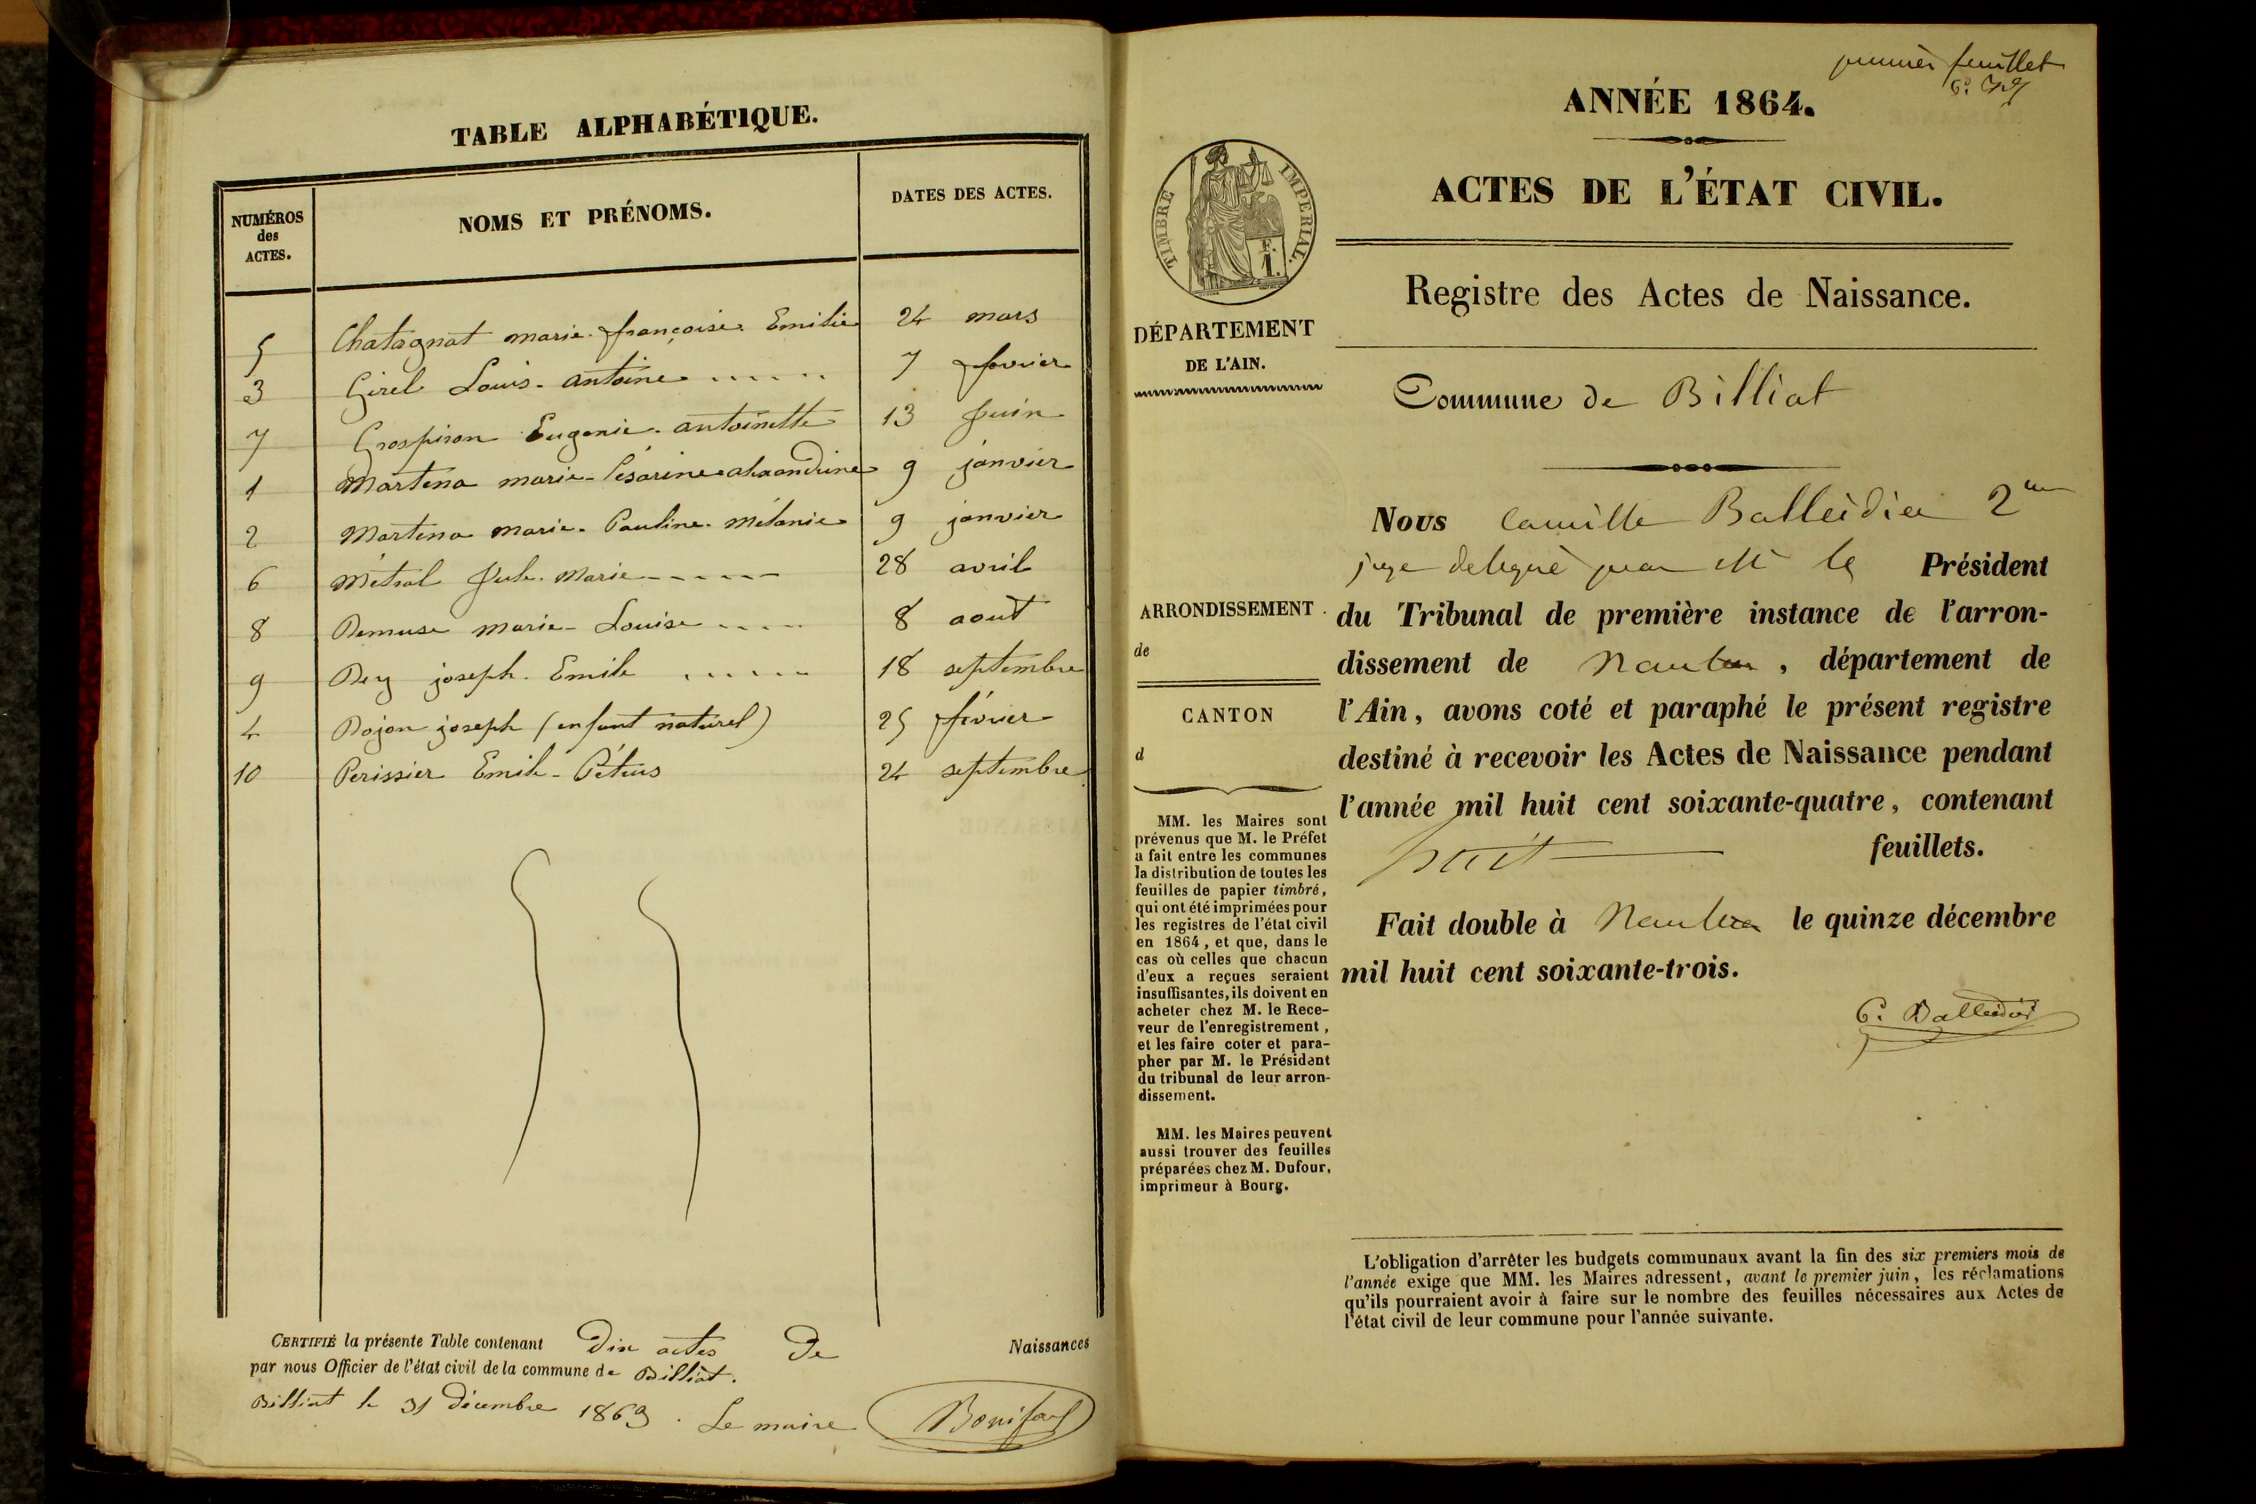 TABLE ALPHABÉTIQUE.
NUMÉROS
des
ACTES.
NOMS ET PRÉNOMS.
DATES DES ACTES.
5 Chatagnat marie françoise Emilie 24 mars
3 Girel Louis antoine ...... 7 fevrier
7 Grospiron Eugenie antoinette 13 juin
1 Martena marie Césarine alexandrine 9 janvier
2 Martena marie Pauline mélanie 9 janvier
6 Métral Jule Marie ------ 28 avril
8 marie Louise ..... 8 août
9 joseph Emile ...... 18 septembre
4 joseph (enfant naturel) 25 février
10 Perissier Emile 24 septembre
CERTIFIÉ la présente Table contenant Dix actes De Naissances
par nous Officier de l'état civil de la commune de Billiat.
Billiat le 31 décembre 1863. Le maire
premier feuillet
ANNÉE 1864.
ACTES DE L'ÉTAT CIVIL.
TIMBRE IMPERIAL.
F.
1.
DÉPARTEMENT
DE L'AIN.
ARRONDISSEMENT
de
CANTON
d
MM. les Maires sont
prévenus que M. le Préfet
a fait entre les communes
la distribution de toutes les
feuilles de papier timbré,
qui ont été imprimées pour
les registres de l'état civil
en 1864, et que, dans le
cas où celles que chacun
d'eux a reçues seraient
insuffisantes, ils doivent en
acheter chez M. le Rece-
veur de l'enregistrement,
et les faire coter et para-
pher par M. le Président
du tribunal de leur arron-
dissement.
MM. les Maires peuvent
aussi trouver des feuilles
préparées chez M. Dufour,
imprimeur à Bourg.
Registre des Actes de Naissance.
Commune de Billiat
Nous Camille Balleidier 2me
juge delegué par Mr le Président
du Tribunal de première instance de l'arron-
dissement de Nantua, département de
l'Ain, avons coté et paraphé le présent registre
destiné à recevoir les Actes de Naissance pendant
l'année mil huit cent soixante-quatre, contenant
huit feuillets.
Fait double à Nantua le quinze décembre
mil huit cent soixante-trois.
C. Balleidier
L'obligation d'arrêter les budgets communaux avant la fin des six premiers mois de
l'année exige que MM. les Maires adressent, avant le premier juin, les réclamations
qu'ils pourraient avoir à faire sur le nombre des feuilles nécessaires aux Actes de
l'état civil de leur commune pour l'année suivante.